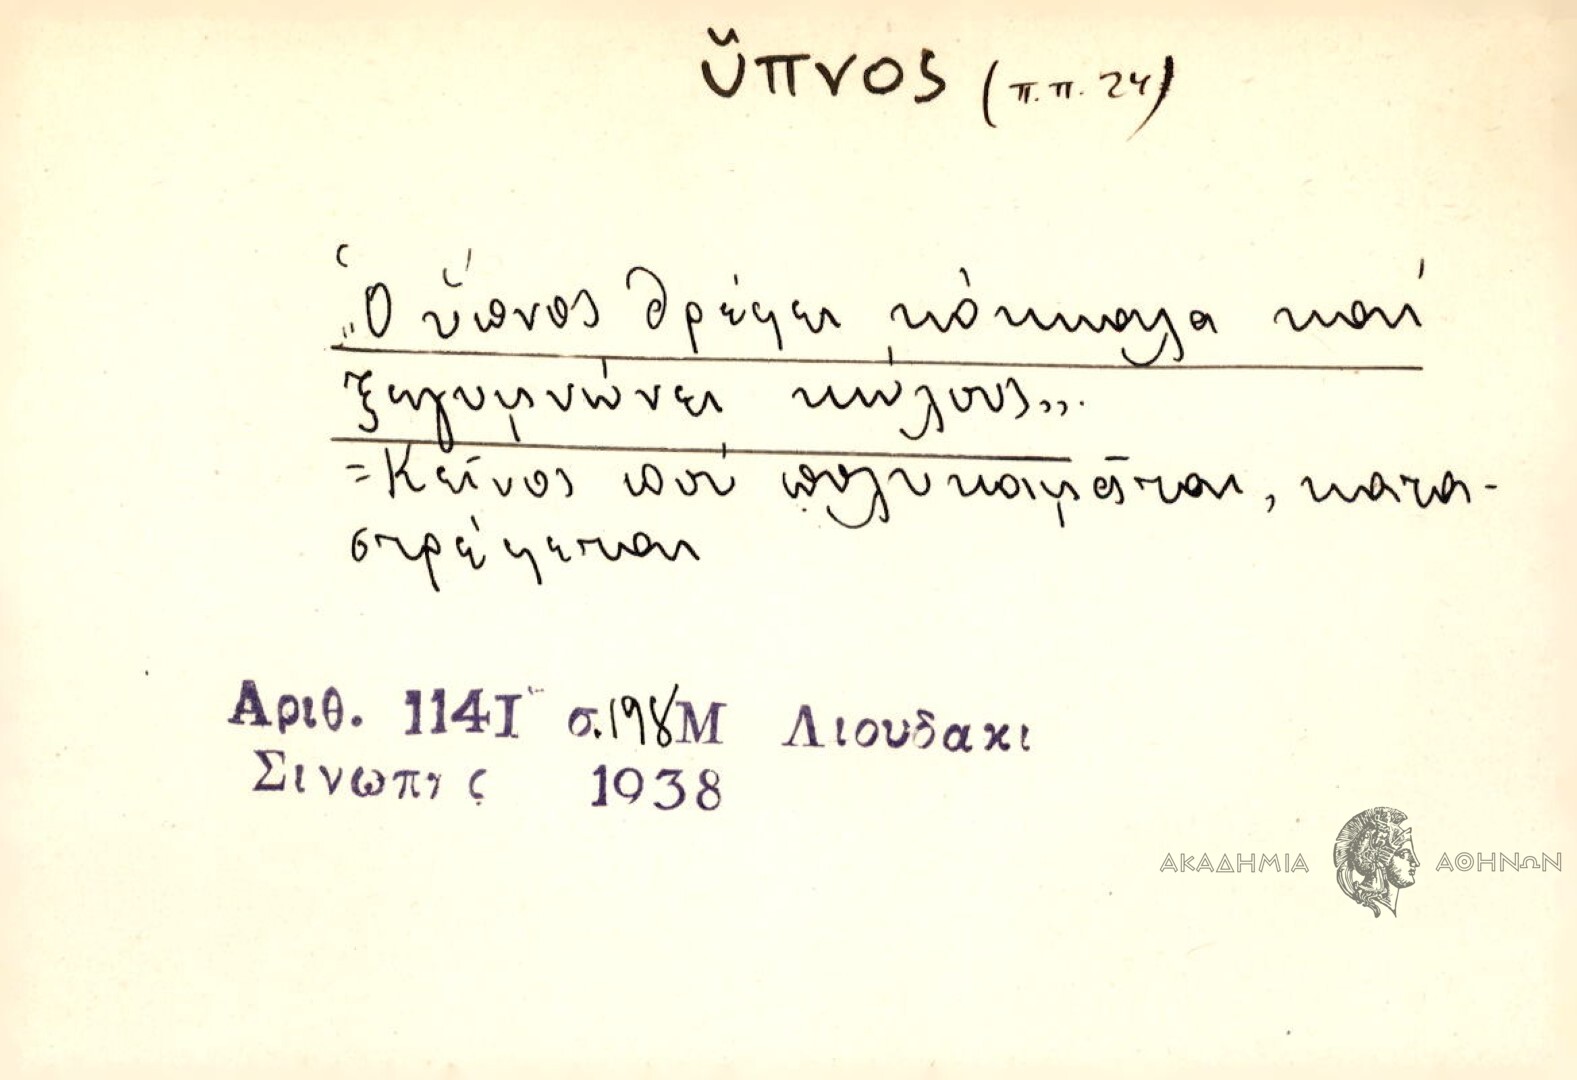 ὕπνος (π.π. 24)
„Ὁ ὕπνος θρέφει κόκκαλα καὶ
ξεγυμνώνει κώλους„.
=Κεῖνος ποὺ πολυκοιμᾶται, κατα-
στρέφεται
Αριθ. 1141 σ.198 Μ Λιουδακι
Σινωπης 1938
ΑΚΑΔΗΜΙΑ ΑΘΗΝΩΝ